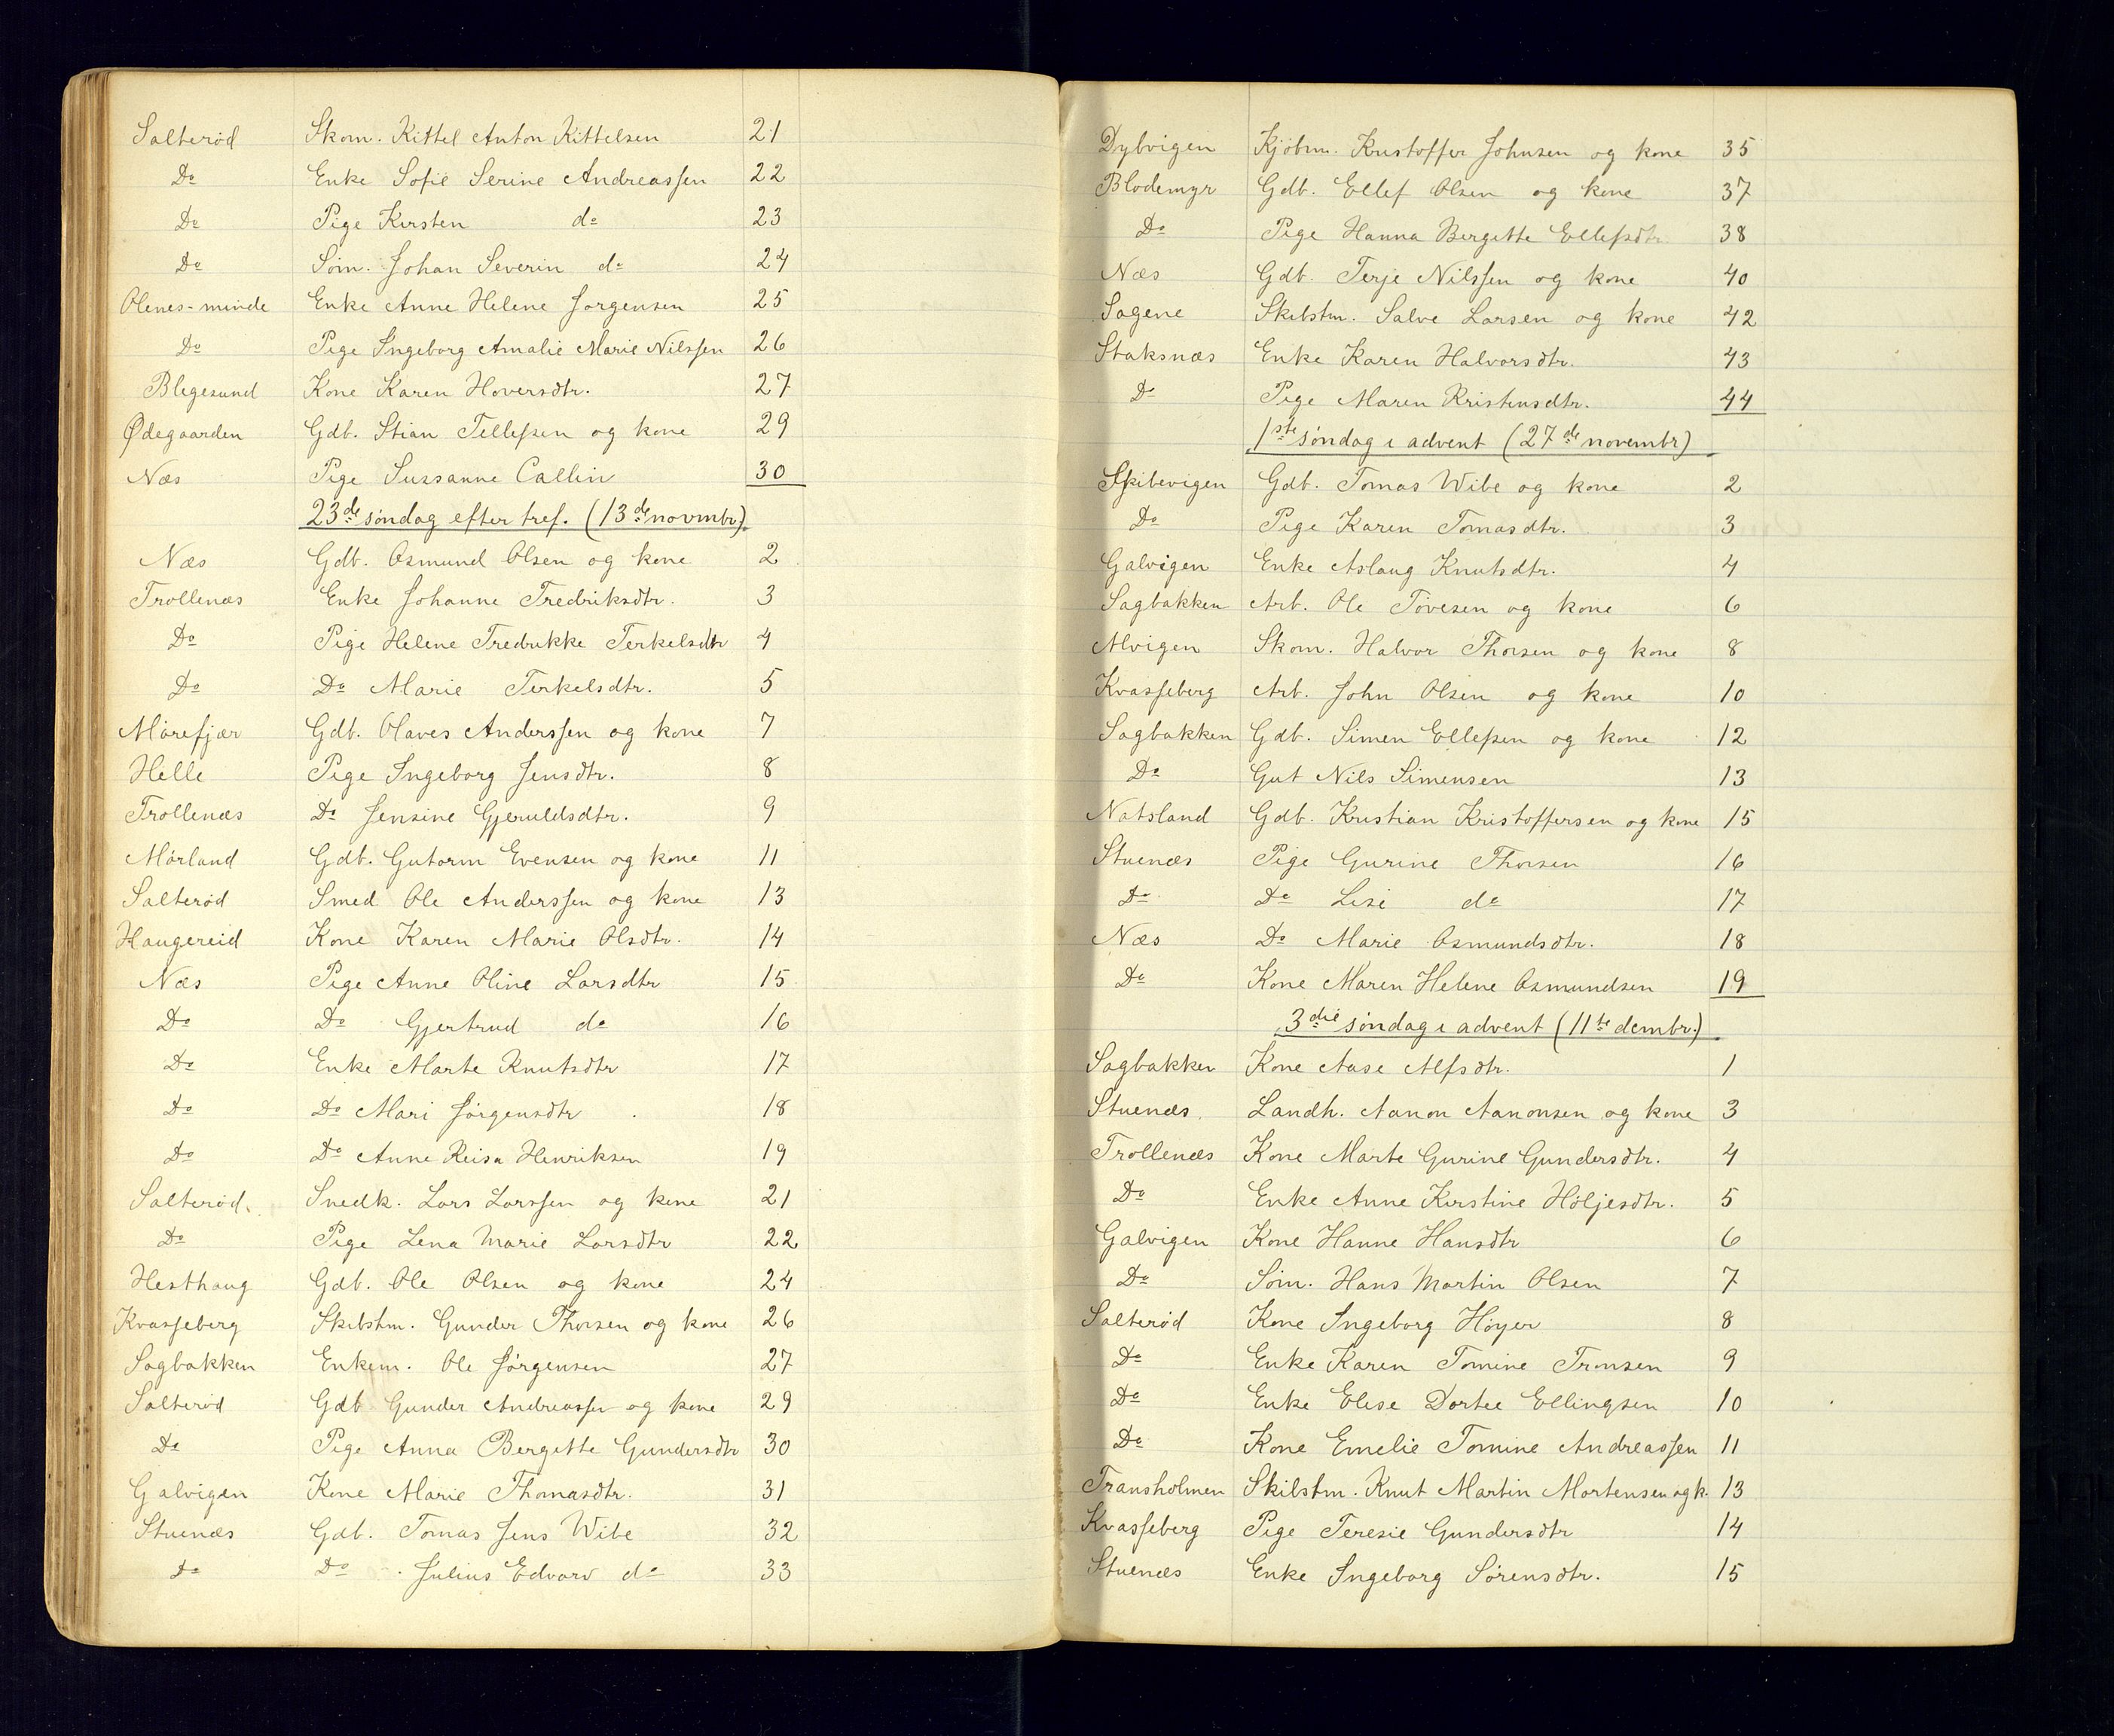 Salterød Skom. Kittel Anton Kittelsen 21
Do Enke Sofie Serine Andreassen 22
Do Pige Kirsten do 23
Do Søm. Johan Severin do 24
Olenes-minde Enke Anne Helene Jørgensen 25
Do Pige Ingeborg Amalie Marie Nilssen 26
Blegesund Kone Karen Hoversdtr. 27
Ødegaarden Gdb. Stian Tellefsen og kone 29
Næs Pige Sussanne Callin 30
23de søndag efter tref. (13de novmbr).
Næs Gdb. Osmund Olsen og kone 2
Trollenæs Enke Johanne Fredriksdtr. 3
Do Pige Helene Fredrikke Terkelsdtr 4
Do Do Marie Terkelsdtr. 5
Mørefjær Gdb. Olaves Anderssen og kone 7
Helle Pige Ingeborg Jensdtr. 8
Trollenæs Do Jensine Gjeruldsdtr. 9
Mørland Gdb. Gutorm Evensen og kone 11
Salterød Smed Ole Anderssen og kone 13
Haugereid Kone Karen Marie Olsdtr. 14
Næs Pige Anne Oline Larsdtr 15
Do Do Gjertrud do 16
Do Enke Marte Knutsdtr 17
Do Do Mari Jørgensdtr 18
Do Do Anne Reisa Henriksen 19
Salterød. Snedk. Lars Larssen og kone 21
Do Pige Lena Marie Larsdtr 22
Hesthaug Gdb. Ole Olsen og kone 24
Kvasseberg Skibstm. Gunder Thorsen og kone 26
Sagbakken Enkem. Ole Jørgensen 27
Salterød Gdb Gunder Andreassen og kone 29
Do Pige Anna Bergitte Gundersdtr 30
Galvigen Kone Marie Thomasdtr. 31
Stuenæs Gdb. Tomas Jens Wibe 32
Do Do Julius Edvard do 33
Dybvigen Kjøbm. Kristoffer Johnsen og kone 35
Blodemyr Gdb. Ellef Olsen og kone 37
Do Pige Hanna Bergitte Ellefsdtr. 38
Næs Gdb. Terje Nilssen og kone 40
Sagene Skibstm. Salve Larsen og kone 42
Staksnæs Enke Karen Halvorsdtr. 43
Do Pige Maren Kristensdtr. 44
1ste søndag i advent (27de novembr)
Skibevigen Gdb. Tomas Wibe og kone 2
Do Pige Karen Tomasdtr. 3
Galvigen Enke Aslaug Knutsdtr. 4
Sagbakken Arb. Ole Tovesen og kone 6
Alvigen Skom. Halvor Thorsen og kone 8
Kvasseberg Arb. John Olsen og kone 10
Sagbakken Gdb. Simen Ellefsen og kone 12
Do Gut Nils Simensen 13
Natsland Gdb. Kristian Kristoffersen og kone 15
Stuenæs Pige Gurine Thorsen 16
Do Do Lise do 17
Næs Do Marie Osmundsdtr. 18
Do Kone Maren Helene Osmundsen 19
3die søndag i advent (11te dembr.)
Sagbakken Kone Aase Alfsdtr. 1
Stuenæs. Landh. Aanon Aanonsen og kone 3
Trollenæs Kone Marte Gurine Gundersdtr. 4
Do Enke Anne Kirstine Høljesdtr. 5
Galvigen Kone Hanne Hansdtr 6
Do Søm. Hans Martin Olsen 7
Salterød Kone Ingeborg Høyer 8
Do Enke Karen Tomine Tronsen 9
Do Enke Elise Dortee Ellingsen 10
Do Kone Emelie Tomine Andreassen 11
Transholmen Skibstm. Knut Martin Mortensen og k. 13
Kvasseberg Pige Teresie Gundersdtr 14
Stuenæs Enke Ingeborg Sørensdtr. 15